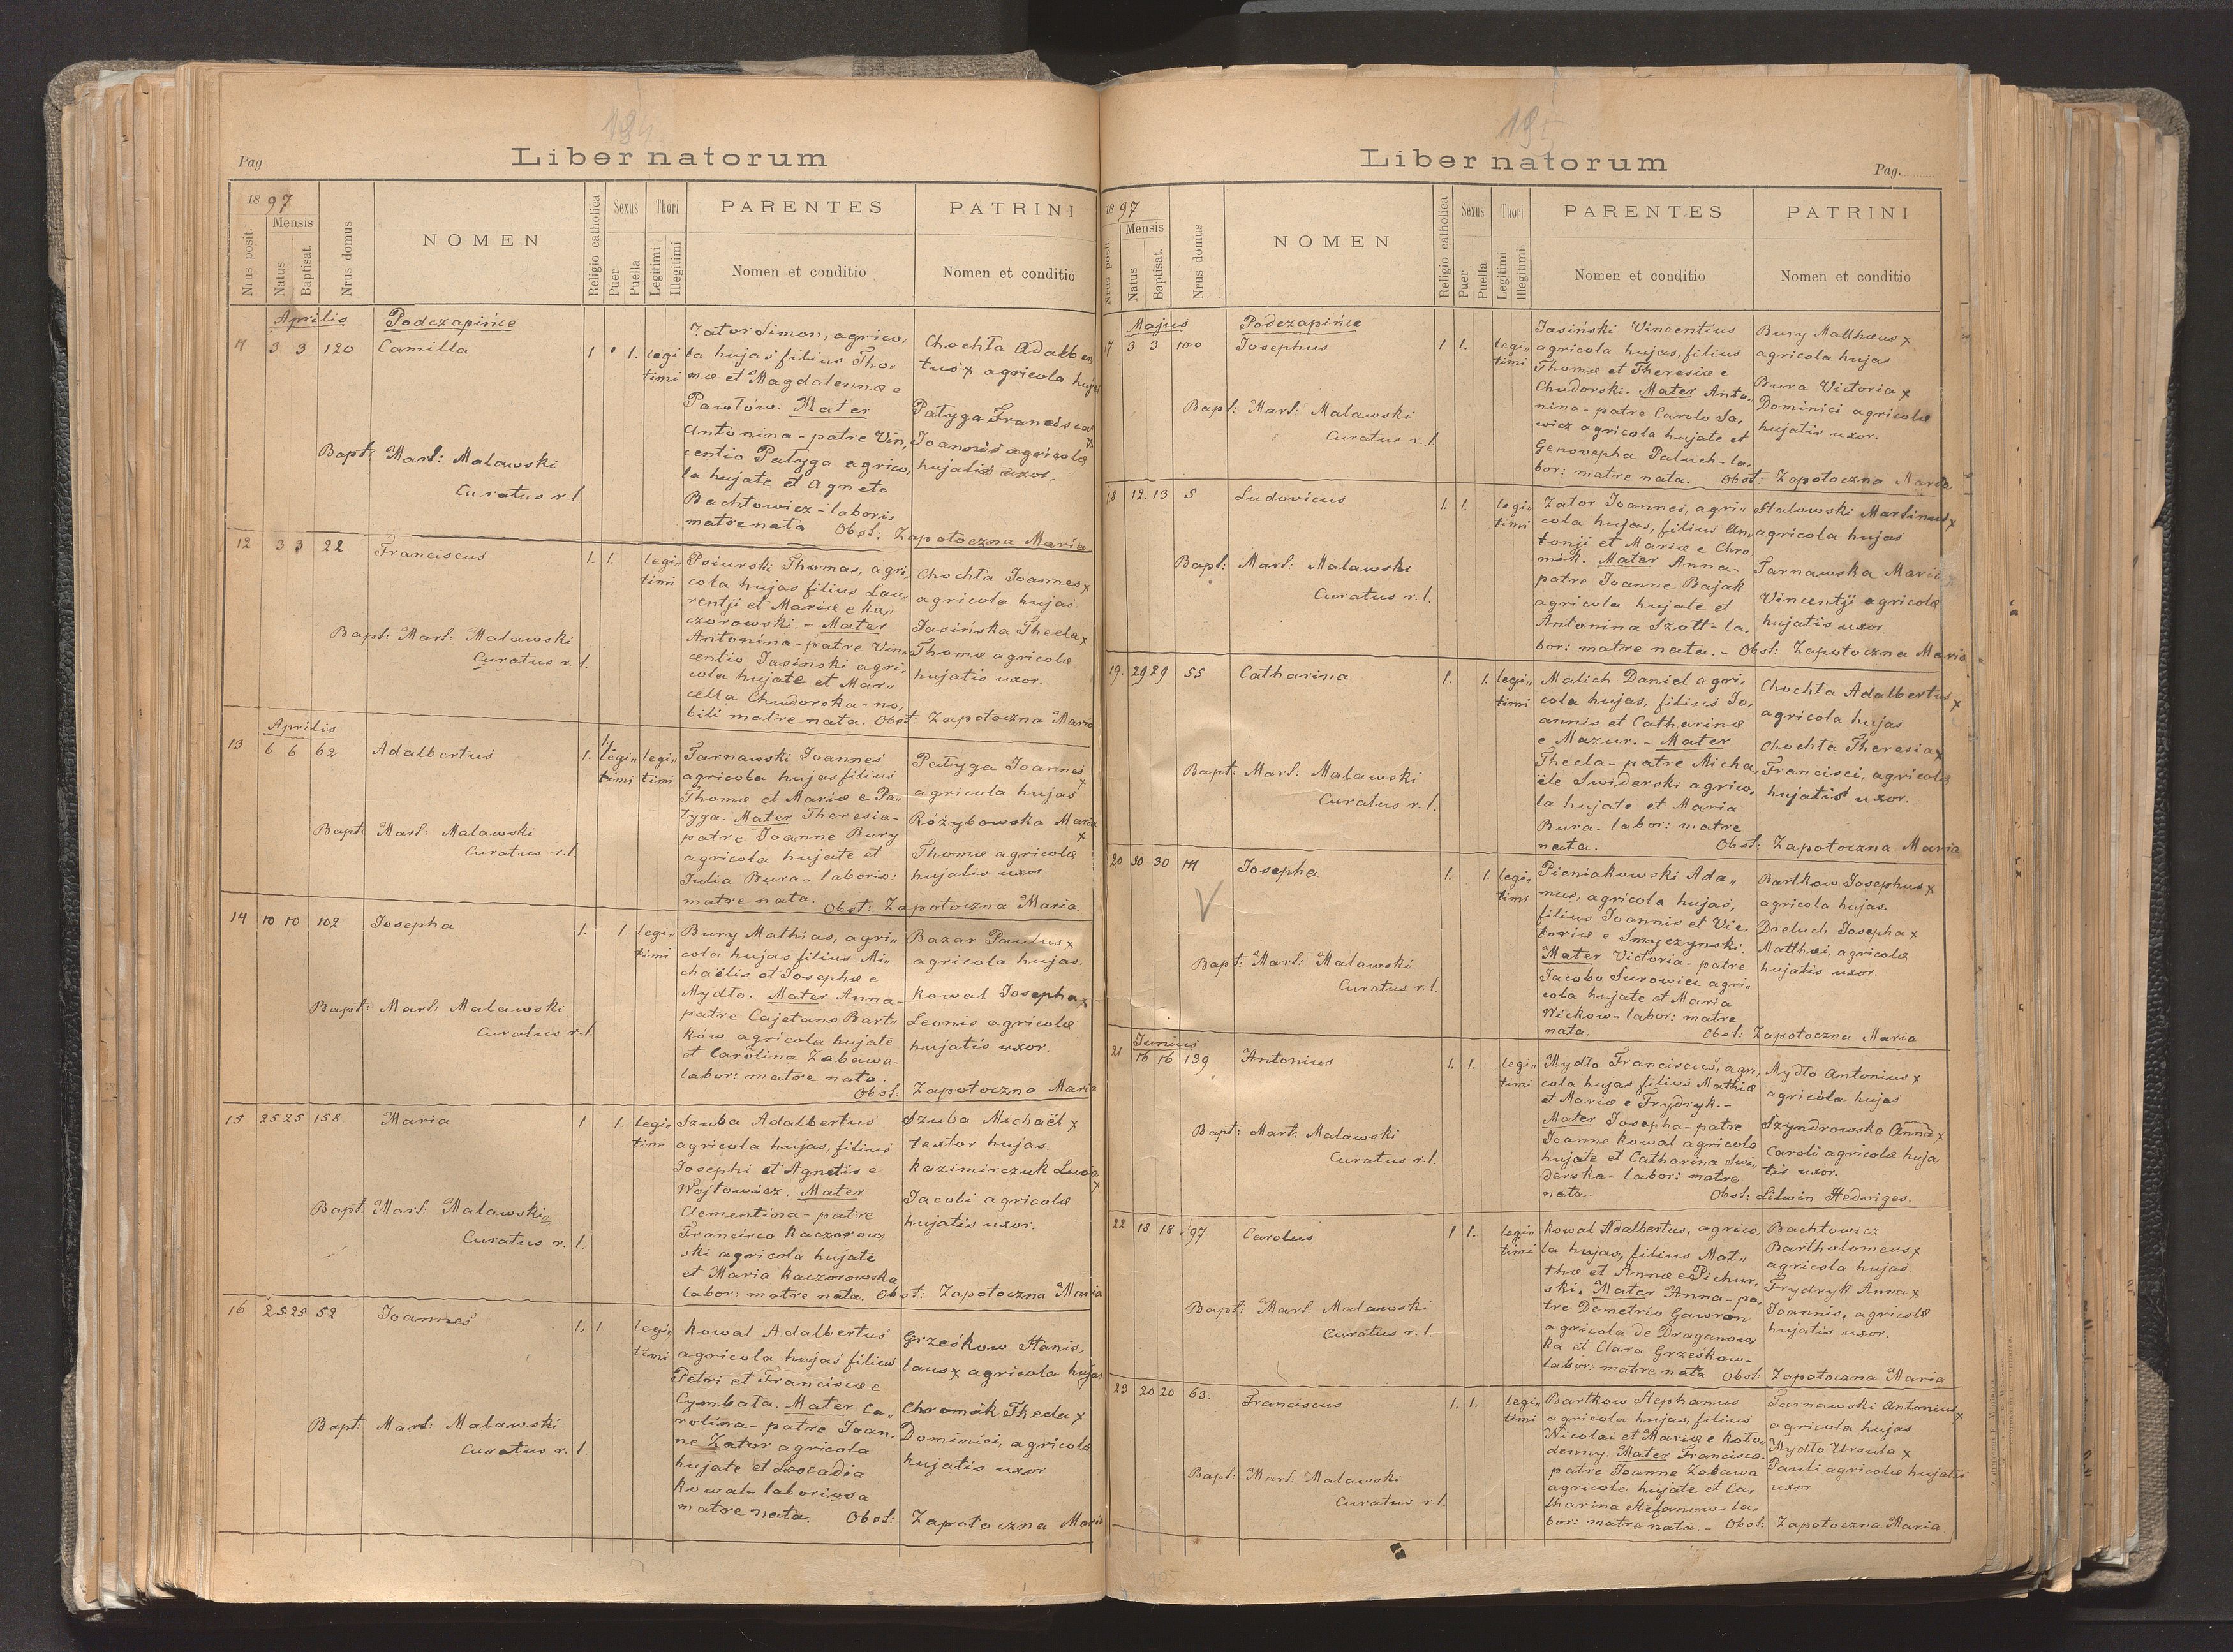 194
Liber natorum
Pag
1897
Nrus posit.
Mensis
Natus
Baptisat.
Nrus domus
NOMEN
Religio catholica
Sexus
Puer
Puella
Thori
Legitimi
Illegitimi
PARENTES
Nomen et conditio
PATRINI
Nomen et conditio
Aprilis
Podczapińce
11 3 3 120 Camilla 1 1. legi
timi
Zator Simon, agrico,
la hujas filius Tho,
mæ et Magdalennæ e
Pawłów. Mater
Antonina - patre Vin,
centio Pałyga agrico,
la hujate et Agnete
Bachtowicz - laboris,
matre nata
Chochła Adalber
tus x agricola hujas
Pałyga Francisca x
Joannis agricolæ
hujatis uxor.
Bapt: Mart: Malawski
Curatus r. l.
Obst: Zapotoczna Maria
12 3 3 22 Franciscus 1. 1. legi„
timi
Psiurski Thomas, agri,
cola hujas filius Lau,
rentji et Mariæ e Ka„
czorowski. - Mater
Antonina - patre Vin„
centio Jasinski agri,
cola hujate et Mar„
cella Chudorska - no,
bili matre nata.
Chochła Joannes x
agricola hujas.
Jasińska Thecla x
Thomæ agricolæ
hujatis uxor.
Bapt: Mart: Malawski
Curatus r. l.
Obst: Zapotoczna Maria
Aprilis
13 6 6 62 Adalbertus 1. 1/. legi„
timi legi„
timi
Tarnawski Joannes
agricola hujas filius
Thomæ et Mariæ e Pa„
łyga. Mater Theresia -
patre Joanne Bury
agricola hujate et
Julia Bura - laboris:
matre nata.
Pałyga Joannes x
agricola hujas
Różybowska Maria x
Thomæ agricolæ
hujatis uxor
Bapt: Mart: Malawski
Curatus r. l.
Obst: Zapotoczna Maria
14 10 10 102 Josepha 1. 1. legi„
timi
Bury Mathias, agri„
cola hujas filius Mi„
chaëlis et Josephæ e
Mydło. Mater Anna -
patre Cajetano Bart„
ków agricola hujate
et Carolina Zabawa -
labor: matre nata.
Bazar Paulus x
agricola hujas.
Kowal Josepha x
Leonis agricolæ
hujatis uxor.
Bapt: Mart: Malawski
Curatus r. l.
Obst: Zapotoczna Maria
15 25 25 158 Maria 1 1. legi„
timi
Szuba Adalbertus
agricola hujas, filius
Josephi et Agnetis e
Wojtowicz. Mater
Clementina - patre
Francisco Kaczorow„
ski agricola hujate
et Maria Kaczorowska
labor: matre nata.
Szuba Michaël x
textor hujas.
Kazimirczuk Lucia x
Jacobi agricolæ
hujatis uxor.
Bapt: Mart: Malawski
Curatus r. l.
Obst: Zapotoczna Maria
16 25 25 52 Joannes 1. 1 legi„
timi
Kowal Adalbertus
agricola hujas filius
Petri et Franciscæ e
Cymbała. Mater Ca„
rolina - patre Joan,
ne Zator agricola
hujate et Leocadia
Kowal - laboriosa
matre nata.
Grzeskow Stanis,
laus x agricola hujas
Chromik Thecla x
Dominici, agricolæ
hujatis uxor
Bapt: Mart: Malawski
Curatus r. l.
Obst: Zapotoczna Maria
195
Liber natorum
Pag.
1897
Nrus posit.
Mensis
Natus
Baptisat.
Nrus domus
NOMEN
Religio catholica
Sexus
Puer
Puella
Thori
Legitimi
Illegitimi
PARENTES
Nomen et conditio
PATRINI
Nomen et conditio
Majus
Podczapińce
17 3 3 100 Josephus 1 1. legi„
timi
Jasiński Vincentius
agricola hujas, filius
Thomæ et Theresiæ e
Chudorski. Mater Anto„
nina - patre Carolo Sa,
wicz agricola hujate et
Genovepha Paluch - la,
bor: matre nata.
Bury Matthæus x
agricola hujas
Bura Victoria x
Dominici agricolæ
hujatis uxor.
Bapt: Mart: Malawski
Curatus r. l.
Obst: Zapotoczna Maria
18 12. 13 5 Ludovicus 1. 1. legi„
timi
Zator Joannes, agri„
cola hujas, filius An,
tonji et Mariæ e Chro,
mik. Mater Anna -
patre Joanne Bajak
agricola hujate et
Antonina Szott - la,
bor: matre nata. -
Stalowski Martinus x
agricola hujas
Tarnawska Maria x
Vincentji agricolæ
hujatis uxor.
Bapt: Mart: Malawski
Curatus r. l.
Obst: Zapotoczna Maria
19. 29 29 55 Catharina 1. 1. legi„
timi
Malich Daniel agri,
cola hujas, filius Jo,
annis et Catharinæ
e Mazur. - Mater
Thecla - patre Micha,
ële Swiderski agrico,
la hujate et Maria
Bura - labor: matre
nata.
Chochła Adalbertus x
agricola hujas
Chochła Theresia x
Francisci, agricolæ
hujatis uxor.
Bapt: Mart: Malawski
Curatus r. l.
Obst: Zapotoczna Maria
20 30 30 141 Josepha 1. 1. legi„
timi
V
Pieniakowski Ada„
mus, agricola hujas,
filius Joannis et Vic,
toriæ e Smyczynski.
Mater Victoria - patre
Jacobo Surowiec agri„
cola hujate et Maria
Wickow - labor: matre
nata.
Bartkow Josephus x
agricola hujas.
Dreluch Josepha x
Matthæi, agricolæ
hujatis uxor.
Bapt: Mart: Malawski
Curatus r. l.
Obst: Zapotoczna Maria
Junius
21 16 16 139 Antonius 1. 1. legi„
timi
Mydło Franciscus, agri,
cola hujas filius Mathiæ
et Mariæ e Frydryk. -
Mater Josepha - patre
Joanne Kowal agricola
hujate et Catharina Swi„
derska - labor: matre
nata.
Mydło Antonius x
agricola hujas
Szyndrowska Anna x
Caroli agricolæ huja,
tis uxor.
Bapt: Mart: Malawski
Curatus r. l.
Obst: Litwin Hedwiges.
22 18 18 97 Carolus 1 1. legi„
timi
Kowal Adalbertus, agrico,
la hujas, filius Mat„
thæ et Annæ e Pichur,
ski. Mater Anna - pa,
tre Demetrio Gawron
agricola de Draganow
ka et Clara Grześkow -
labor: matre nata
Bachtowicz
Bartholomeus x
agricola hujas.
Frydryk Anna x
Joannis, agricolæ
hujatis uxor.
Bapt: Mart: Malawski
Curatus r. l.
Obst: Zapotoczna Maria
23 20 20 63. Franciscus 1. 1. legi„
timi
Bartkow Stephanus
agricola hujas, filius
Nicolai et Mariæ e Koło„
denny. Mater Francisca -
patre Joanne Zabawa
agricola hujate et Ca,
tharina Stefanow - la,
bor: matre nata. -
Tarnawski Antonius x
agricola hujas
Mydło Ursula x
Pauli agricolæ hujatis
uxor
Bapt: Mart: Malawski
Curatus r. l.
Obst: Zapotoczna Maria